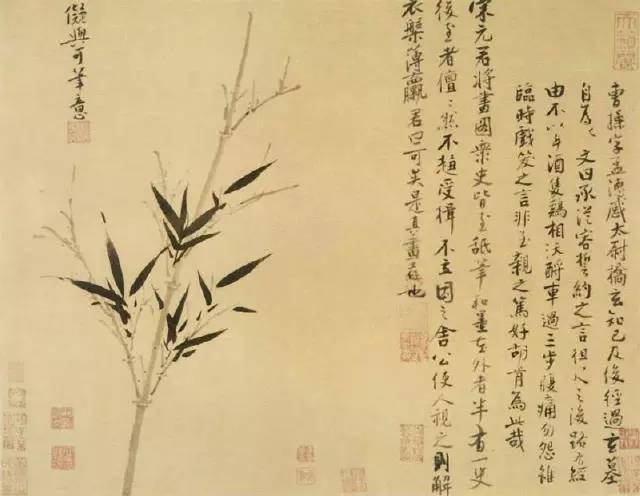 曹操字孟德感太尉橋玄知己及後經過玄墓
自為之文曰承從容誓約之言徂之後路有經
由不以斗酒隻鷄相沃酹車過三步腹痛勿怨雖
臨時戲笑之言非至親之篤好胡肯為此哉
宋元君將畫圖衆史皆至舐筆和墨在外者半有一史
後至者儃儃然不趨受揖不立因之舍公使人視之則解
衣槃薄臝君曰可矣是真畫者也
儗與可筆意